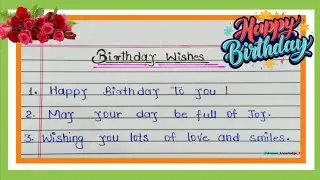 Happy
Birthday
Birthday Wishes
1. Happy Birthday To you !
2. May your day be full of Joy.
3. Wishing you lots of love and smiles.